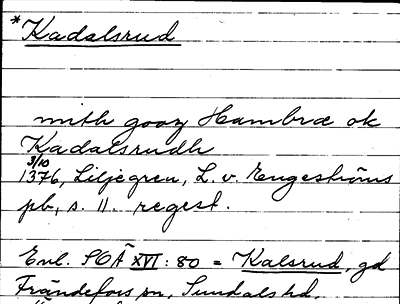 *Kadalsrud
mith gooz Hambræ ok
Kadalsrudh
3/10
1376, Liljegren, L. v. Engeströms
pb, s. 11. regest.
Enl. SOÄ XVI: 80 = Kalsrud, gd
Frändefors sn, Sundals hd.